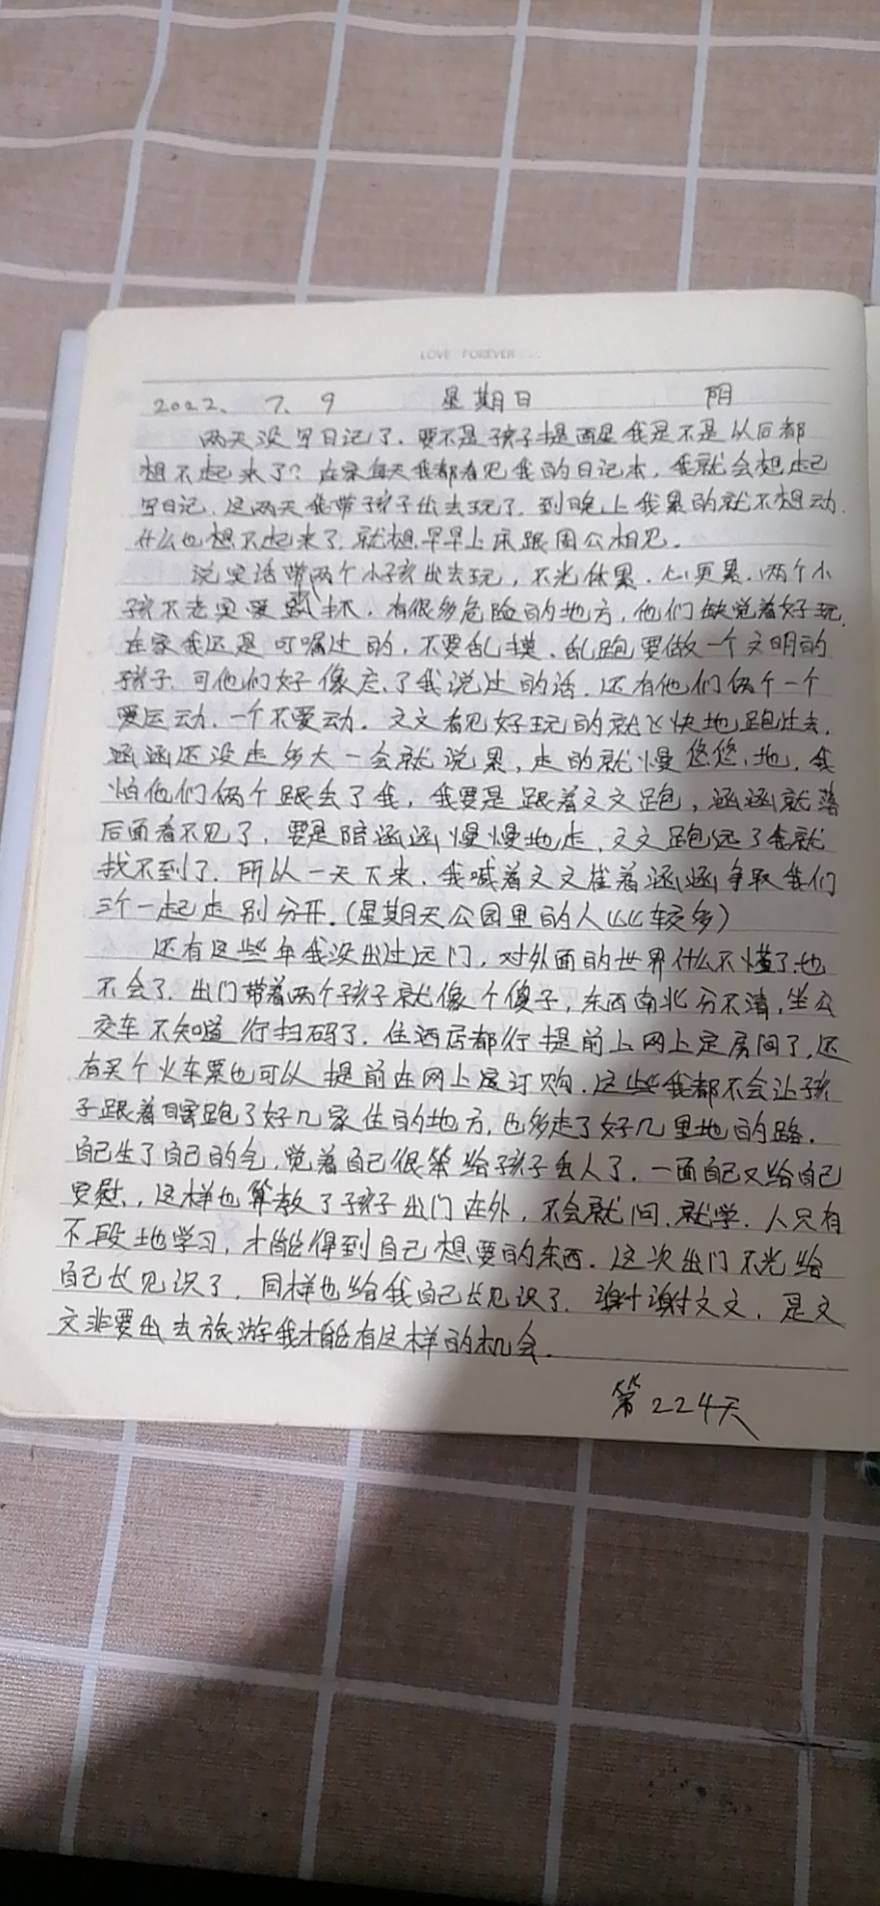 LOVE FOREVER
2022. 7. 9 星期日 阴
两天没写日记了.要不是孩子提醒我是不是以后都
想不起来了?在家每天我都看见我的日记本,我就会想起
写日记.这两天我带孩子出去玩了.到晚上我累的就不想动.
什么也想不起来了.就想早早上床跟周公相见.
说实话带两个小孩出去玩,不光体累.心更累.两个小
孩不老实爱乱抹.有很多危险的地方,他们缺觉着好玩.
在家我还是叮嘱过的,不要乱摸.乱跑要做一个文明的
孩子.可他们好像忘了我说过的话.还有他们俩个一个
爱运动.一个不爱动.文文看见好玩的就飞快地跑过去.
涵涵还没走多大一会就说累,走的就慢悠悠地.我
怕他们俩个跟丢了我,我要是跟着文文跑,涵涵就落
后面看不见了,要是陪涵涵慢慢地走,文文跑远了我就
找不到了.所以一天下来.我喊着文文崔着涵涵争取我们
三个一起走别分开.(星期天公园里的人比较多)
还有这些年我没出过远门,对外面的世界什么不懂了也
不会了.出门带着两个孩子就像个傻子,东西南北分不清,坐公
交车不知道行扫码了.住酒店都行提前上网上定房间了,还
有买个火车票也可以提前在网上订购.这些我都不会让孩
子跟着瞎跑了好几家住的地方,也多走了好几里地的路.
自己生了自己的气,觉着自己很笨给孩子丢人了.一面自己又给自己
安慰,这样也算教了孩子出门在外,不会就问.就学.人只有
不段地学习,才能得到自己想要的东西.这次出门不光给
自己长见识了.同样也给我自己长见识了.谢谢文文,是文
文非要出去旅游我才能有这样的机会.
第224天